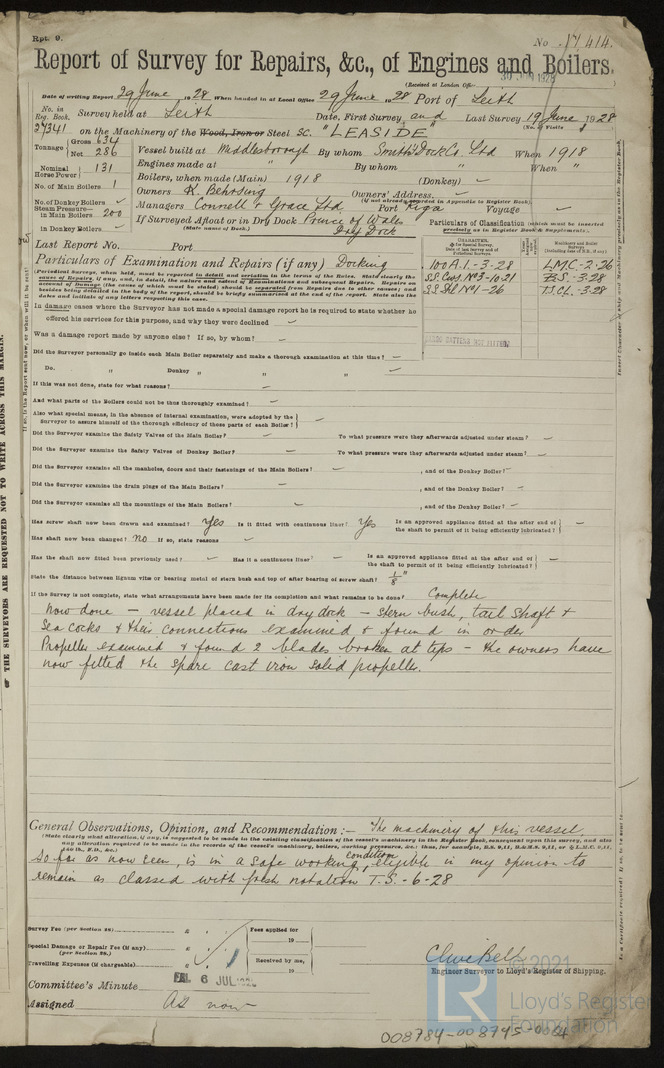 Rpt. 9.
No. 17414.
Report of Survey for Repairs, &c., of Engines and Boilers.
(Received at London Office
Date of writing Report 29 June 1928 When handed in at Local Office 29 June 1928 Port of Leith
No. in Reg. Book. Survey held at Leith Date, First Survey and Last Survey 19 June 1928
27341 on the Machinery of the Wood, Iron or Steel SC. "LEASIDE" (No. of Visits
Tonnage Gross 634 Net 286 Vessel built at Middlesborough By whom Smith's Dock Co. Ltd When 1918
Nominal Horse Power 131 Engines made at " By whom " When "
No. of Main Boilers 1 Boilers, when made (Main) 1918 (Donkey) ✓
No. of Donkey Boilers ✓ Owners K. Behrsing Owners' Address ✓
(if not already recorded in Appendix to Register Book.)
Steam Pressure— in Main Boilers 200 Managers Connell & Grace Ltd Port Riga Voyage ✓
in Donkey Boilers ✓ If Surveyed Afloat or in Dry Dock Prince of Wales Dry Dock
(State name of Dock.)
Particulars of Classification (which must be inserted precisely as in Register Book & Supplements).
Last Report No. Port
Particulars of Examination and Repairs (if any) Docking
100 A.1. - 3-28 LMC. - 2-26
S.S. No 3-10-21 B.S. - 3.28
S.S. No 1-26 T.S.CL. - 3.28
In damage cases where the Surveyor has not made a special damage report he is required to state whether he
offered his services for this purpose, and why they were declined
Was a damage report made by anyone else? If so, by whom?
Did the Surveyor personally go inside each Main Boiler separately and make a thorough examination at this time?
Do. " Donkey " " " "
If this was not done, state for what reasons?
And what parts of the Boilers could not be thus thoroughly examined?
Also what special means, in the absence of internal examination, were adopted by the
Surveyor to assure himself of the thorough efficiency of those parts of each Boiler?
Did the Surveyor examine the Safety Valves of the Main Boiler? To what pressure were they afterwards adjusted under steam?
Did the Surveyor examine the Safety Valves of Donkey Boiler? To what pressure were they afterwards adjusted under steam?
Did the Surveyor examine all the manholes, doors and their fastenings of the Main Boilers? , and of the Donkey Boiler?
Did the Surveyor examine the drain plugs of the Main Boilers? , and of the Donkey Boiler?
Did the Surveyor examine all the mountings of the Main Boilers? , and of the Donkey Boiler?
Has screw shaft now been drawn and examined? Yes Is it fitted with continuous liner? Yes Is an approved appliance fitted at the after end of the shaft to permit of it being efficiently lubricated?
Has shaft now been changed? No If so, state reasons
Has the shaft now fitted been previously used? Has it a continuous liner? Is an approved appliance fitted at the after end of the shaft to permit of it being efficiently lubricated?
State the distance between lignum vitæ or bearing metal of stern bush and top of after bearing of screw shaft? 1/8"
If the Survey is not complete, state what arrangements have been made for its completion and what remains to be done? Complete
Now done — vessel placed in dry dock — stern bush, tail shaft &
Sea cocks & their connections examined & found in order
Propeller examined & found 2 blades broken at tips — the owners have
now fitted the spare cast iron solid propeller.
General Observations, Opinion, and Recommendation:— The machinery of this vessel,
so far as now seen, is in a safe working condition, eligible in my opinion to
remain as classed with fresh notation T.S. - 6-28
Survey Fee (per Section 28) £ Fees applied for
Special Damage or Repair Fee (if any) £ 19
(per Section 28.)
Travelling Expenses (if chargeable) £ Received by me, 19
Clive Bell
Engineer Surveyor to Lloyd's Register of Shipping.
Committee's Minute FRI. 6 JUL 1928
Assigned As now
© 2021
LR
Lloyd's Register
Foundation
008784-008795-0064
OF THE SURVEYORS ARE REQUESTED NOT TO WRITE ACROSS THIS MARGIN.